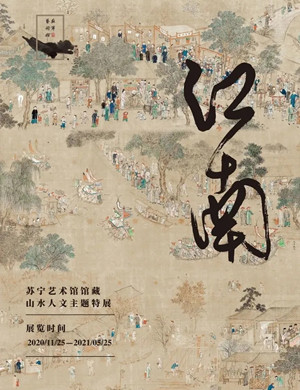 江南
苏宁艺术馆馆藏
山水人文主题特展
展览时间
2020/11/25—2021/05/25